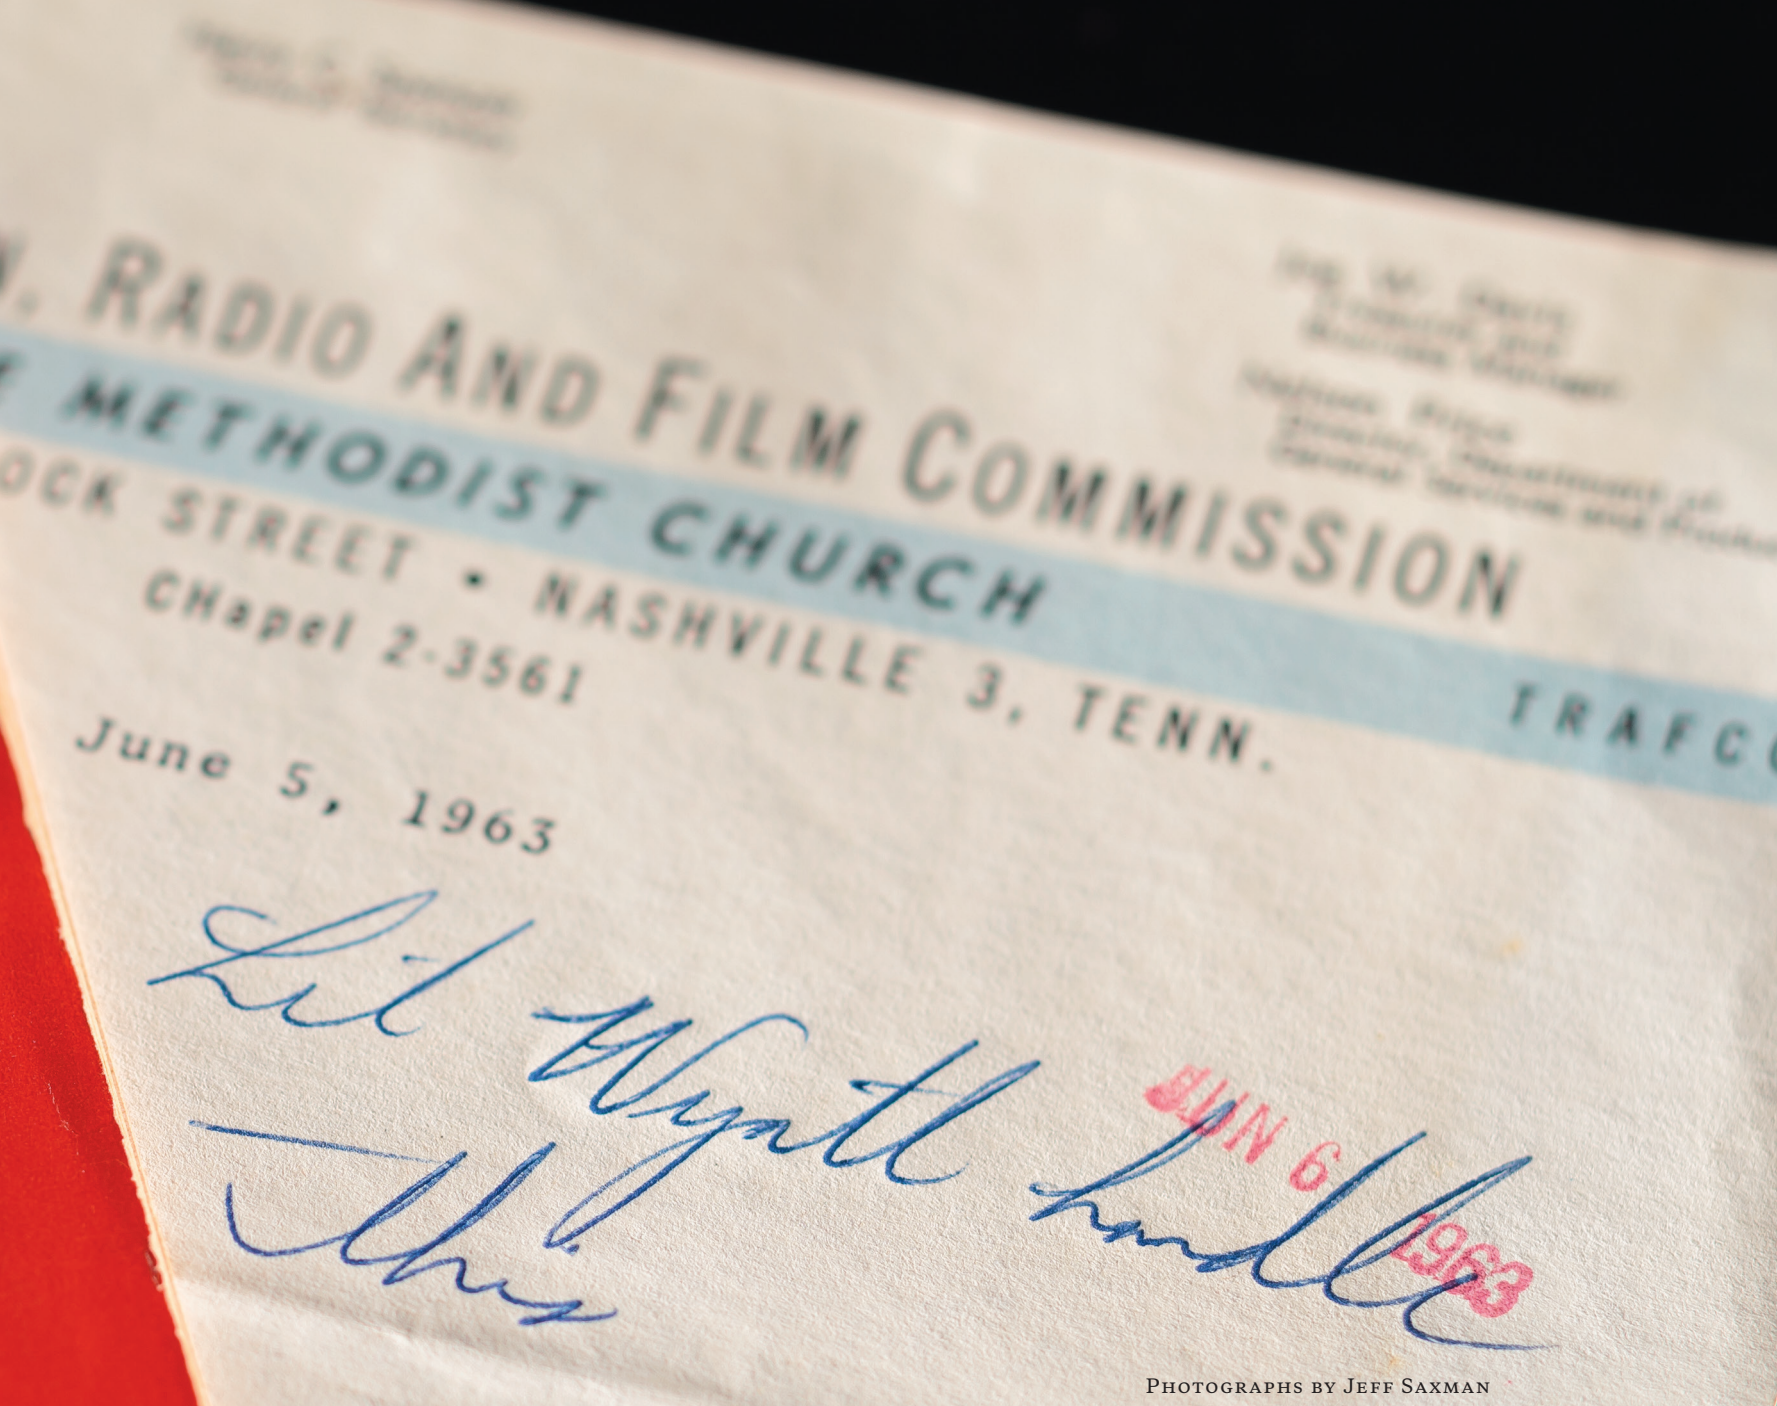 . RADIO AND FILM COMMISSION
METHODIST CHURCH
TRAFCO
OCK STREET • NASHVILLE 3, TENN.
CHapel 2-3561
June 5, 1963
Let Wyatt handle
this
JUN 6 1963
PHOTOGRAPHS BY JEFF SAXMAN